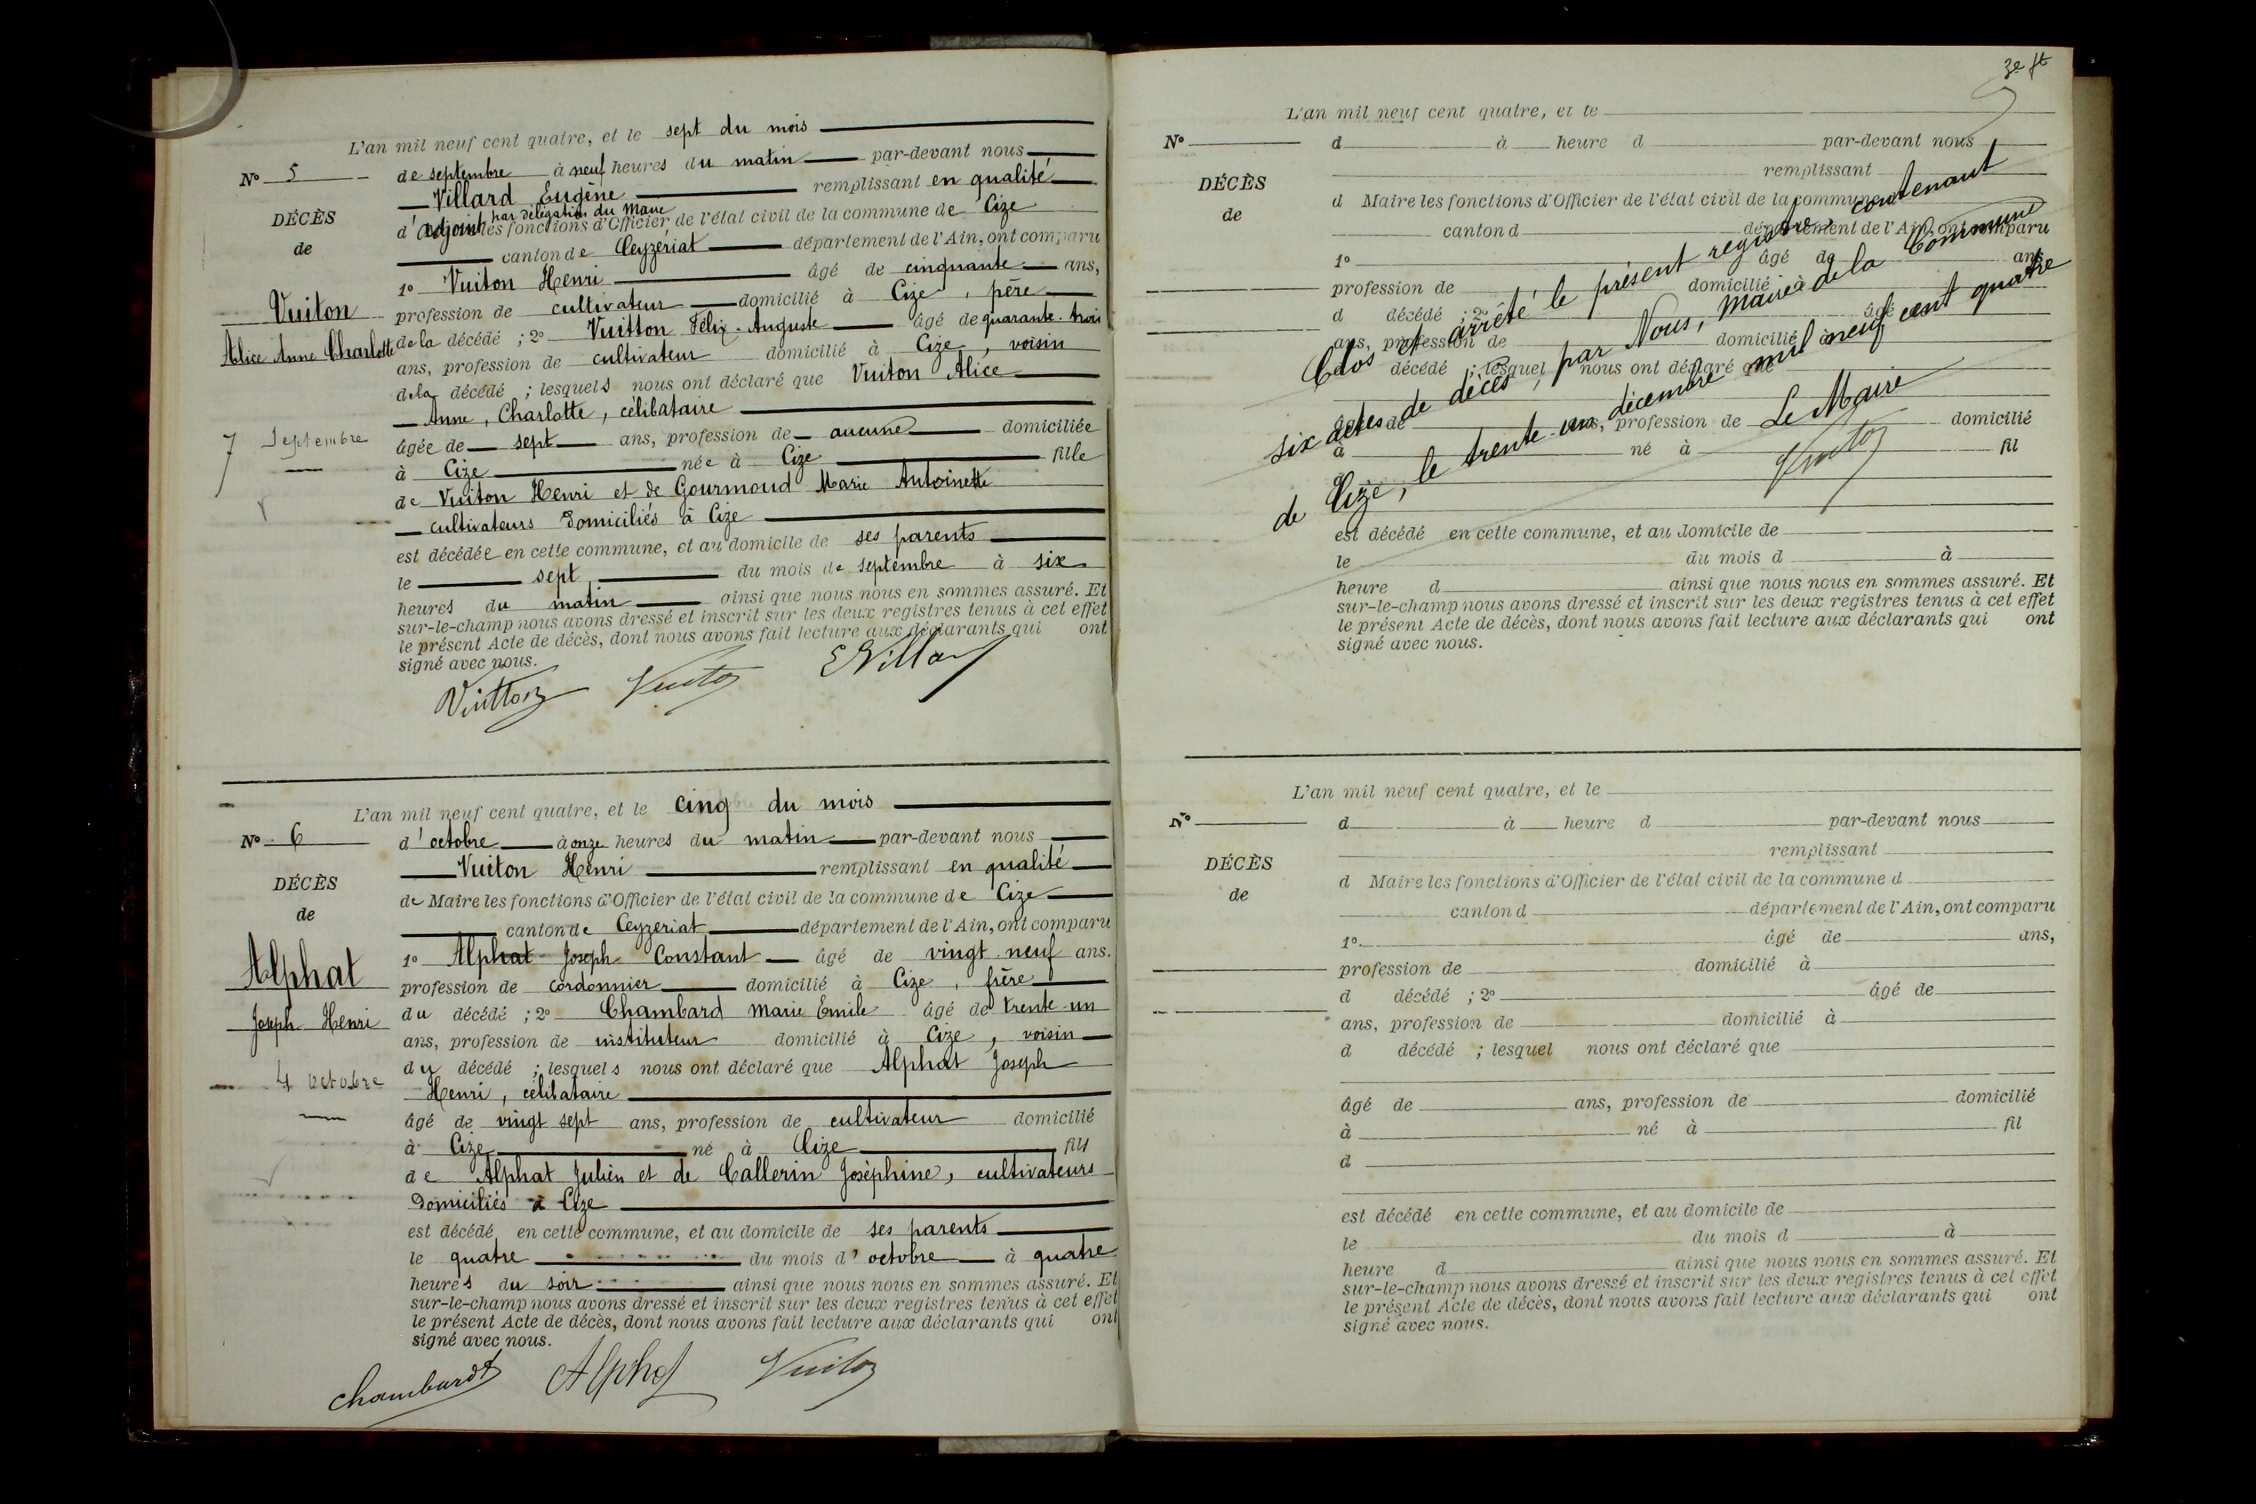 L'an mil neuf cent quatre, et le sept du mois
N° 5 de septembre à neuf heures du matin par-devant nous
Villard Eugène remplissant en qualité
DÉCÈS
par délégation du Maire
d'adjoint les fonctions d'Officier de l'état civil de la commune de Cize
de
canton de Ceyzériat département de l'Ain, ont comparu
1° Vuiton Henri âgé de cinquante ans,
Vuiton
profession de cultivateur domicilié à Cize, père
Alice Anne Charlotte
de la décédé ; 2° Vuitton Félix-Auguste âgé de quarante-trois
ans, profession de cultivateur domicilié à Cize, voisin
de la décédé ; lesquels nous ont déclaré que Vuiton Alice
Anne, Charlotte, célibataire
7 Septembre
âgée de sept ans, profession de aucune domiciliée
à Cize née à Cize fille
de Vuiton Henri et de Gourmoud Marie Antoinette
cultivateurs domiciliés à Cize
est décédée en cette commune, et au domicile de ses parents
le sept du mois de septembre à six
heures du matin ainsi que nous nous en sommes assuré. Et
sur-le-champ nous avons dressé et inscrit sur les deux registres tenus à cet effet
le présent Acte de décès, dont nous avons fait lecture aux déclarants qui ont
signé avec nous.
Vuitton Vuiton EVillard
L'an mil neuf cent quatre, et le cinq du mois
N° 6 d'octobre à onze heures du matin par-devant nous
Vuiton Henri remplissant en qualité
DÉCÈS
de Maire les fonctions d'Officier de l'état civil de la commune de Cize
de
canton de Ceyzeriat département de l'Ain, ont comparu
Alphat
1° Alphat Joseph Constant âgé de vingt neuf ans.
profession de cordonnier domicilié à Cize, frère
Joseph Henri
du décédé ; 2° Chambard Marie Emile âgé de trente-un
ans, profession de instituteur domicilié à Cize, voisin
du décédé ; lesquels nous ont déclaré que Alphat Joseph
4 octobre
Henri, célibataire
âgé de vingt sept ans, profession de cultivateur domicilié
à Cize né à Cize fils
de Alphat Julien et de Callerin Joséphine, cultivateurs
domiciliés à Cize
est décédé en cette commune, et au domicile de ses parents
le quatre du mois d'octobre à quatre
heures du soir ainsi que nous nous en sommes assuré. Et
sur-le-champ nous avons dressé et inscrit sur les deux registres tenus à cet effet
le présent Acte de décès, dont nous avons fait lecture aux déclarants qui ont
signé avec nous.
Chambard Alphat Vuiton
3e ft
L'an mil neuf cent quatre, et le
N° d à heure d par-devant nous
remplissant
DÉCÈS
d Maire les fonctions d'Officier de l'état civil de la commune
de
canton d département de l'Ain, ont comparu
1° âgé de ans
profession de domicilié à
d décédé ; 2° âgé
ans, profession de domicilié à
décédé ; lesquel nous ont déclaré que
âgé de ans, profession de domicilié
à né à fil
Clos et arrêté le présent registre, contenant
six actes de décès, par Nous, Maire de la Commune
de Cize, le trente-un décembre mil neuf cent quatre
Le Maire
Vuiton
est décédé en cette commune, et au domicile de
le du mois d à
heure d ainsi que nous nous en sommes assuré. Et
sur-le-champ nous avons dressé et inscrit sur les deux registres tenus à cet effet
le présent Acte de décès, dont nous avons fait lecture aux déclarants qui ont
signé avec nous.
L'an mil neuf cent quatre, et le
N° d à heure d par-devant nous
remplissant
DÉCÈS
d Maire les fonctions d'Officier de l'état civil de la commune d
de
canton d département de l'Ain, ont comparu
1° âgé de ans,
profession de domicilié à
d décédé ; 2° âgé de
ans, profession de domicilié à
d décédé ; lesquel nous ont déclaré que
âgé de ans, profession de domicilié
à né à fil
d
est décédé en cette commune, et au domicile de
le du mois d à
heure d ainsi que nous nous en sommes assuré. Et
sur-le-champ nous avons dressé et inscrit sur les deux registres tenus à cet effet
le présent Acte de décès, dont nous avons fait lecture aux déclarants qui ont
signé avec nous.